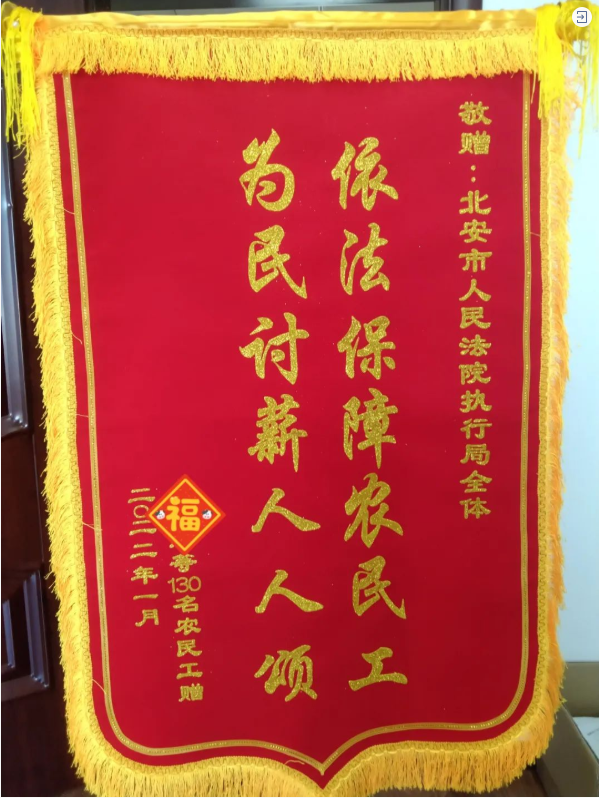 敬赠：北安市人民法院执行局全体
依法保障农民工
为民讨薪人人颂
福
等130名农民工赠
二〇二二年一月